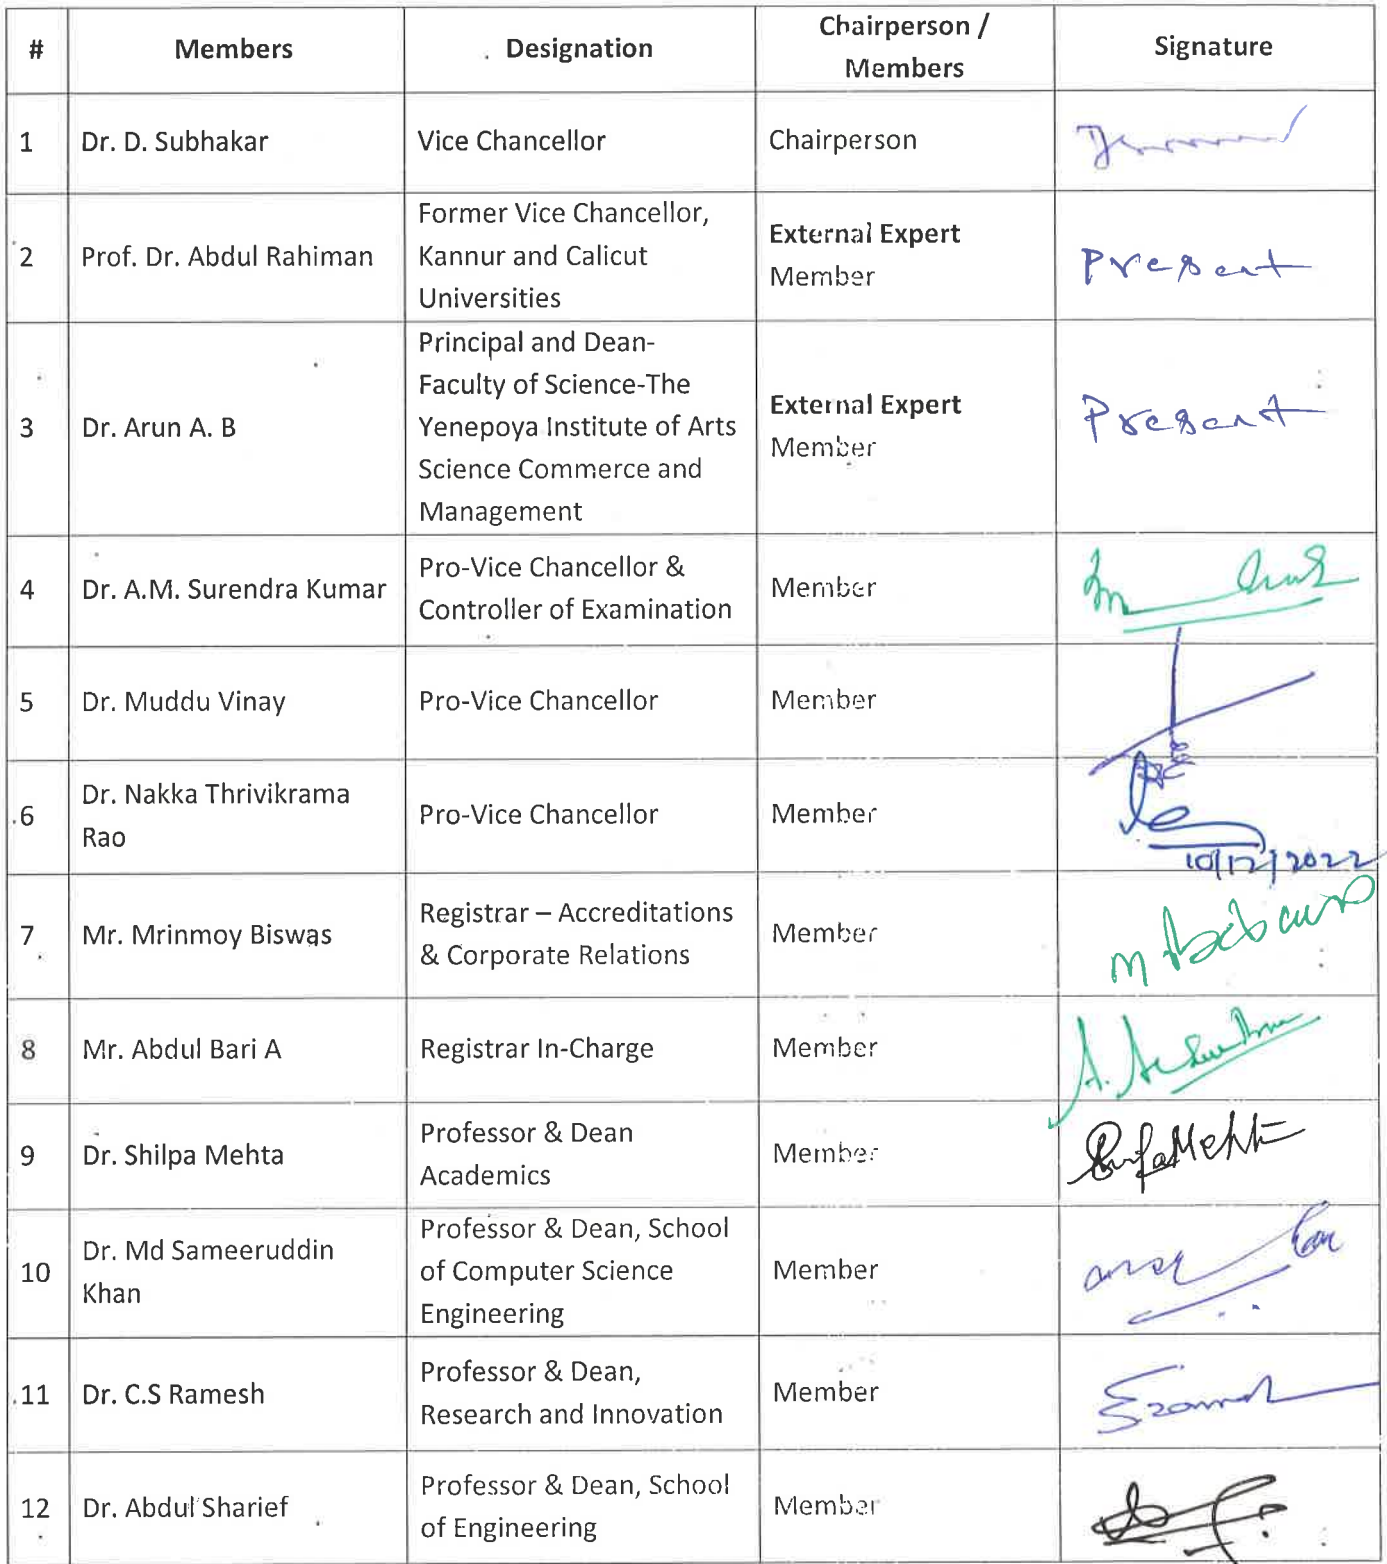 #
Members
Designation
Chairperson /
Members
Signature
1
Dr. D. Subhakar
Vice Chancellor
Chairperson
2
Prof. Dr. Abdul Rahiman
Former Vice Chancellor,
Kannur and Calicut
Universities
External Expert
Member
Present
3
Dr. Arun A. B
Principal and Dean-
Faculty of Science-The
Yenepoya Institute of Arts
Science Commerce and
Management
External Expert
Member
Present
4
Dr. A.M. Surendra Kumar
Pro-Vice Chancellor &
Controller of Examination
Member
5
Dr. Muddu Vinay
Pro-Vice Chancellor
Member
6
Dr. Nakka Thrivikrama
Rao
Pro-Vice Chancellor
Member
10/12/2022
7
Mr. Mrinmoy Biswas
Registrar – Accreditations
& Corporate Relations
Member
8
Mr. Abdul Bari A
Registrar In-Charge
Member
9
Dr. Shilpa Mehta
Professor & Dean
Academics
Member
10
Dr. Md Sameeruddin
Khan
Professor & Dean, School
of Computer Science
Engineering
Member
11
Dr. C.S Ramesh
Professor & Dean,
Research and Innovation
Member
12
Dr. Abdul Sharief
Professor & Dean, School
of Engineering
Member